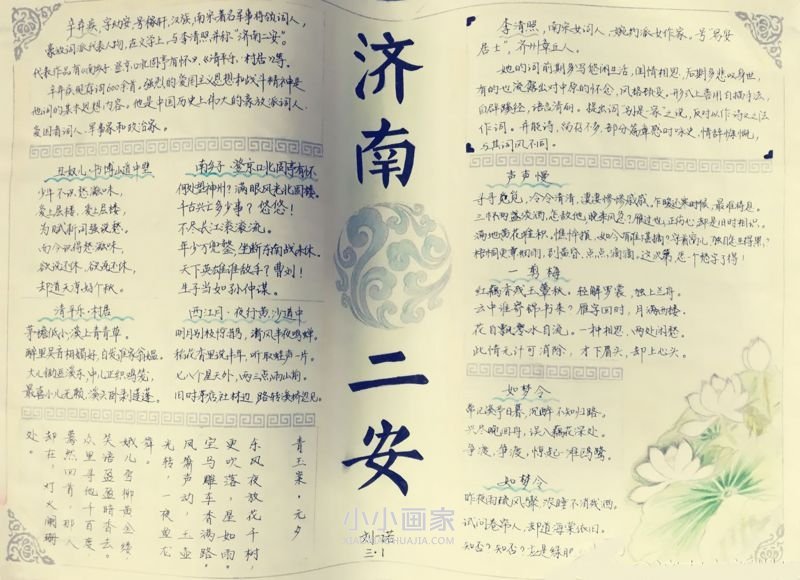 辛弃疾,字幼安,号稼轩,汉族,南宋著名军事将领词人,
豪放词派代表人物,在文学上,与李清照并称“济南二安”。
代表作品有《南乡子·登京口北固亭有怀》、《清平乐·村居》等。
辛弃疾现存词600余首,强烈的爱国主义思想和战斗精神是
他词的基本思想内容。他是中国历史上伟大的豪放派词人、
爱国者词人、军事家和政治家。
丑奴儿·书博山道中壁
少年不识愁滋味,
爱上层楼,爱上层楼,
为赋新词强说愁。
而今识得愁滋味,
欲说还休,欲说还休,
却道天凉好个秋。
南乡子·登京口北固亭有怀
何处望神州?满眼风光北固楼。
千古兴亡多少事?悠悠!
不尽长江滚滚流。
年少万兜鍪,坐断东南战未休。
天下英雄谁敌手?曹刘!
生子当如孙仲谋。
清平乐·村居
茅檐低小,溪上青青草。
醉里吴音相媚好,白发谁家翁媪。
大儿锄豆溪东,中儿正织鸡笼,
最喜小儿无赖,溪头卧剥莲蓬。
西江月·夜行黄沙道中
明月别枝惊鹊,清风半夜鸣蝉。
稻花香里说丰年,听取蛙声一片。
七八个星天外,两三点雨山前。
旧时茅店社林边,路转溪桥忽见。
青玉案·元夕
东风夜放花千树,
更吹落,星如雨。
宝马雕车香满路。
凤箫声动,玉壶
光转,一夜鱼龙
舞。
蛾儿雪柳黄金缕,
笑语盈盈暗香去。
众里寻他千百度,
蓦然回首,那人
却在,灯火阑珊
处。
济南二安
刘诺
三·1
李清照,南宋女词人,婉约派女作家,号“易安
居士”,齐州章丘人。
她的词前期多写悠闲生活,闺情相思,后期多悲叹身世,
有的也流露出对中原的怀念,风格顿变。形式上善用白描手法,
自辟途径,语言清丽。提出词“别是一家”之说,反对以作诗文之法
作词。并能诗,尚存不多,部分篇章感时咏史,情辞慷慨,
与其词风不同。
声声慢
寻寻觅觅,冷冷清清,凄凄惨惨戚戚,乍暖还寒时候,最难将息。
三杯两盏淡酒,怎敌他,晚来风急?雁过也,正伤心,却是旧时相识。
满地黄花堆积,憔悴损,如今有谁堪摘?守着窗儿,独自怎生得黑?
梧桐更兼细雨,到黄昏、点点、滴滴。这次第,怎一个愁字了得!
一剪梅
红藕香残玉簟秋,轻解罗裳,独上兰舟。
云中谁寄锦书来?雁字回时,月满西楼。
花自飘零水自流。一种相思,两处闲愁。
此情无计可消除,才下眉头,却上心头。
如梦令
常记溪亭日暮,沉醉不知归路。
兴尽晚回舟,误入藕花深处。
争渡,争渡,惊起一滩鸥鹭。
如梦令
昨夜雨疏风骤,浓睡不消残酒。
试问卷帘人,却道海棠依旧。
知否?知否?应是绿肥
小小画家
XIAOXIAOHUAJIA.COM